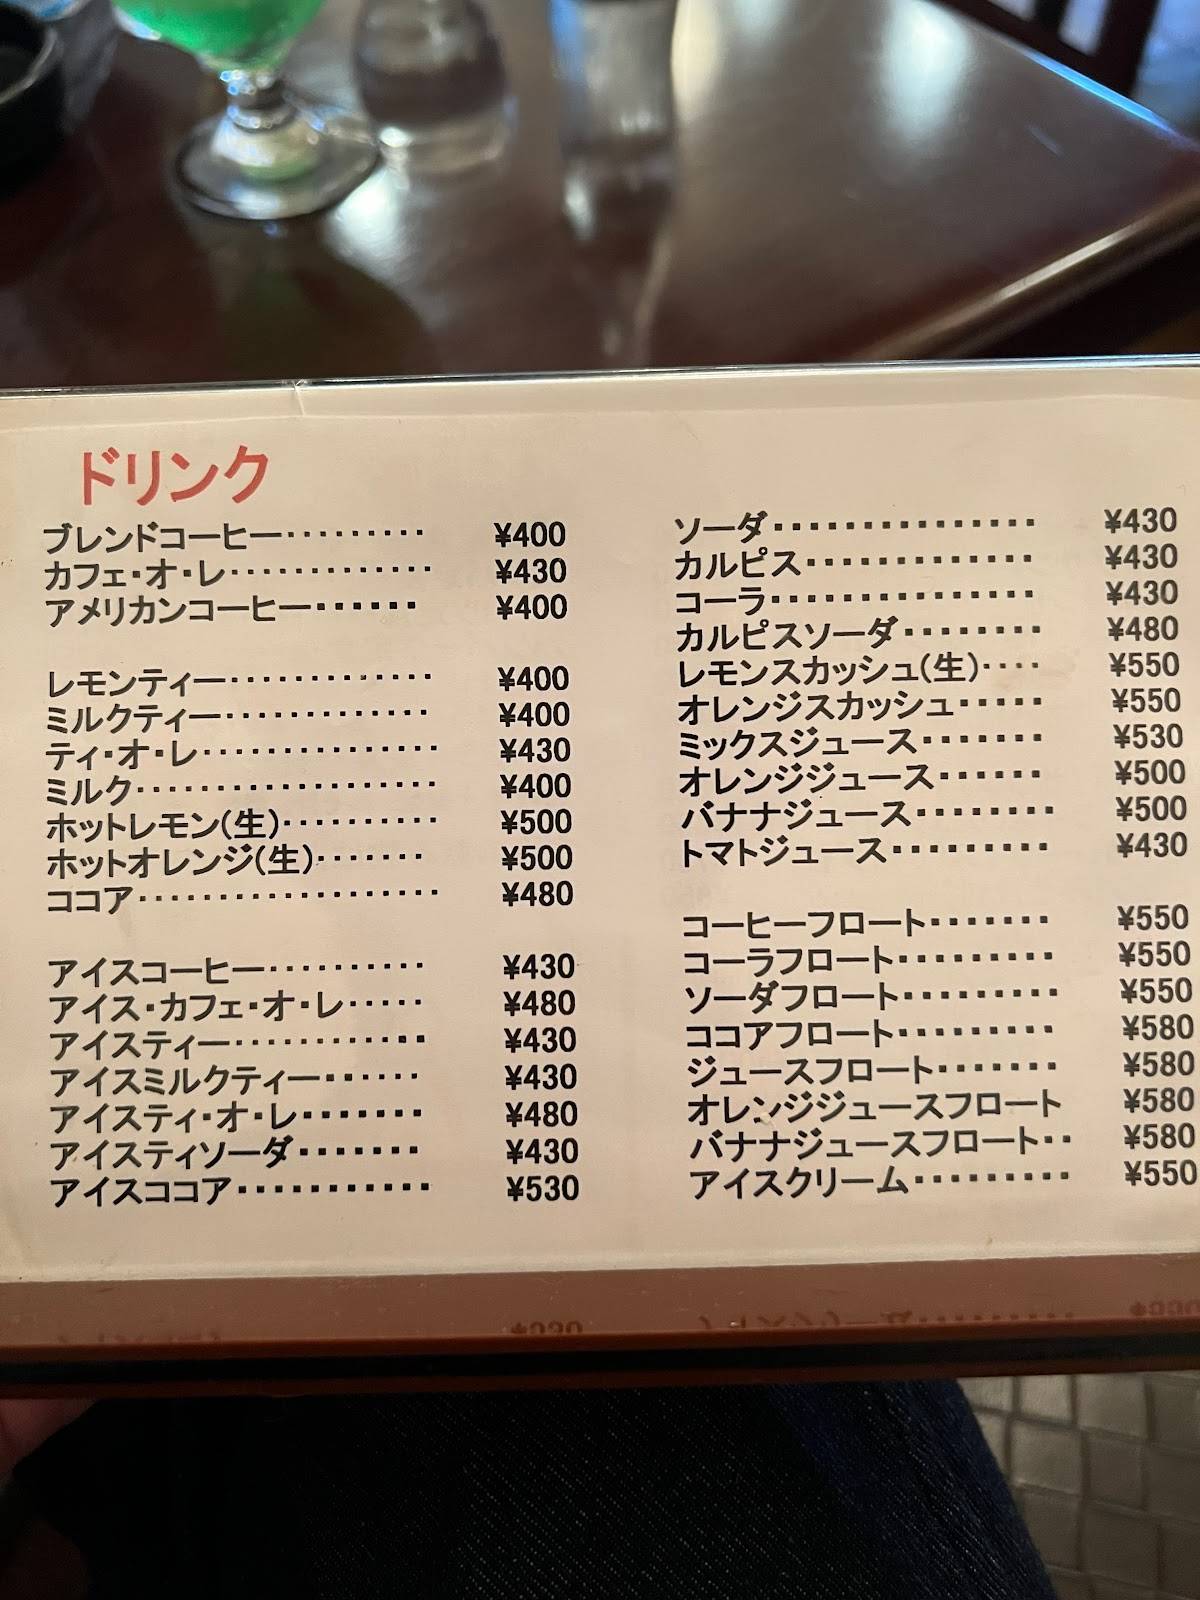 ドリンク
ブレンドコーヒー・・・・・・・・・ ¥400
カフェ・オ・レ・・・・・・・・・・・・・ ¥430
アメリカンコーヒー・・・・・・ ¥400
レモンティー・・・・・・・・・・・・・ ¥400
ミルクティー・・・・・・・・・・・・・ ¥400
ティ・オ・レ・・・・・・・・・・・・・・・ ¥430
ミルク・・・・・・・・・・・・・・・・・・・ ¥400
ホットレモン(生)・・・・・・・・・・ ¥500
ホットオレンジ(生)・・・・・・・ ¥500
ココア・・・・・・・・・・・・・・・・・・・ ¥480
アイスコーヒー・・・・・・・・・・ ¥430
アイス・カフェ・オ・レ・・・・・ ¥480
アイスティー・・・・・・・・・・・・ ¥430
アイスミルクティー・・・・・・ ¥430
アイスティ・オ・レ・・・・・・・ ¥480
アイスティソーダ・・・・・・・ ¥430
アイスココア・・・・・・・・・・・ ¥530
ソーダ・・・・・・・・・・・・・・・ ¥430
カルピス・・・・・・・・・・・・・ ¥430
コーラ・・・・・・・・・・・・・・・ ¥430
カルピスソーダ・・・・・・・・ ¥480
レモンスカッシュ(生)・・・・ ¥550
オレンジスカッシュ・・・・・ ¥550
ミックスジュース・・・・・・・ ¥530
オレンジジュース・・・・・・ ¥500
バナナジュース・・・・・・・・ ¥500
トマトジュース・・・・・・・・・ ¥430
コーヒーフロート・・・・・・・ ¥550
コーラフロート・・・・・・・・・ ¥550
ソーダフロート・・・・・・・・・ ¥550
ココアフロート・・・・・・・・・ ¥580
ジュースフロート・・・・・・・ ¥580
オレンジジュースフロート ¥580
バナナジュースフロート・・ ¥580
アイスクリーム・・・・・・・・・ ¥550